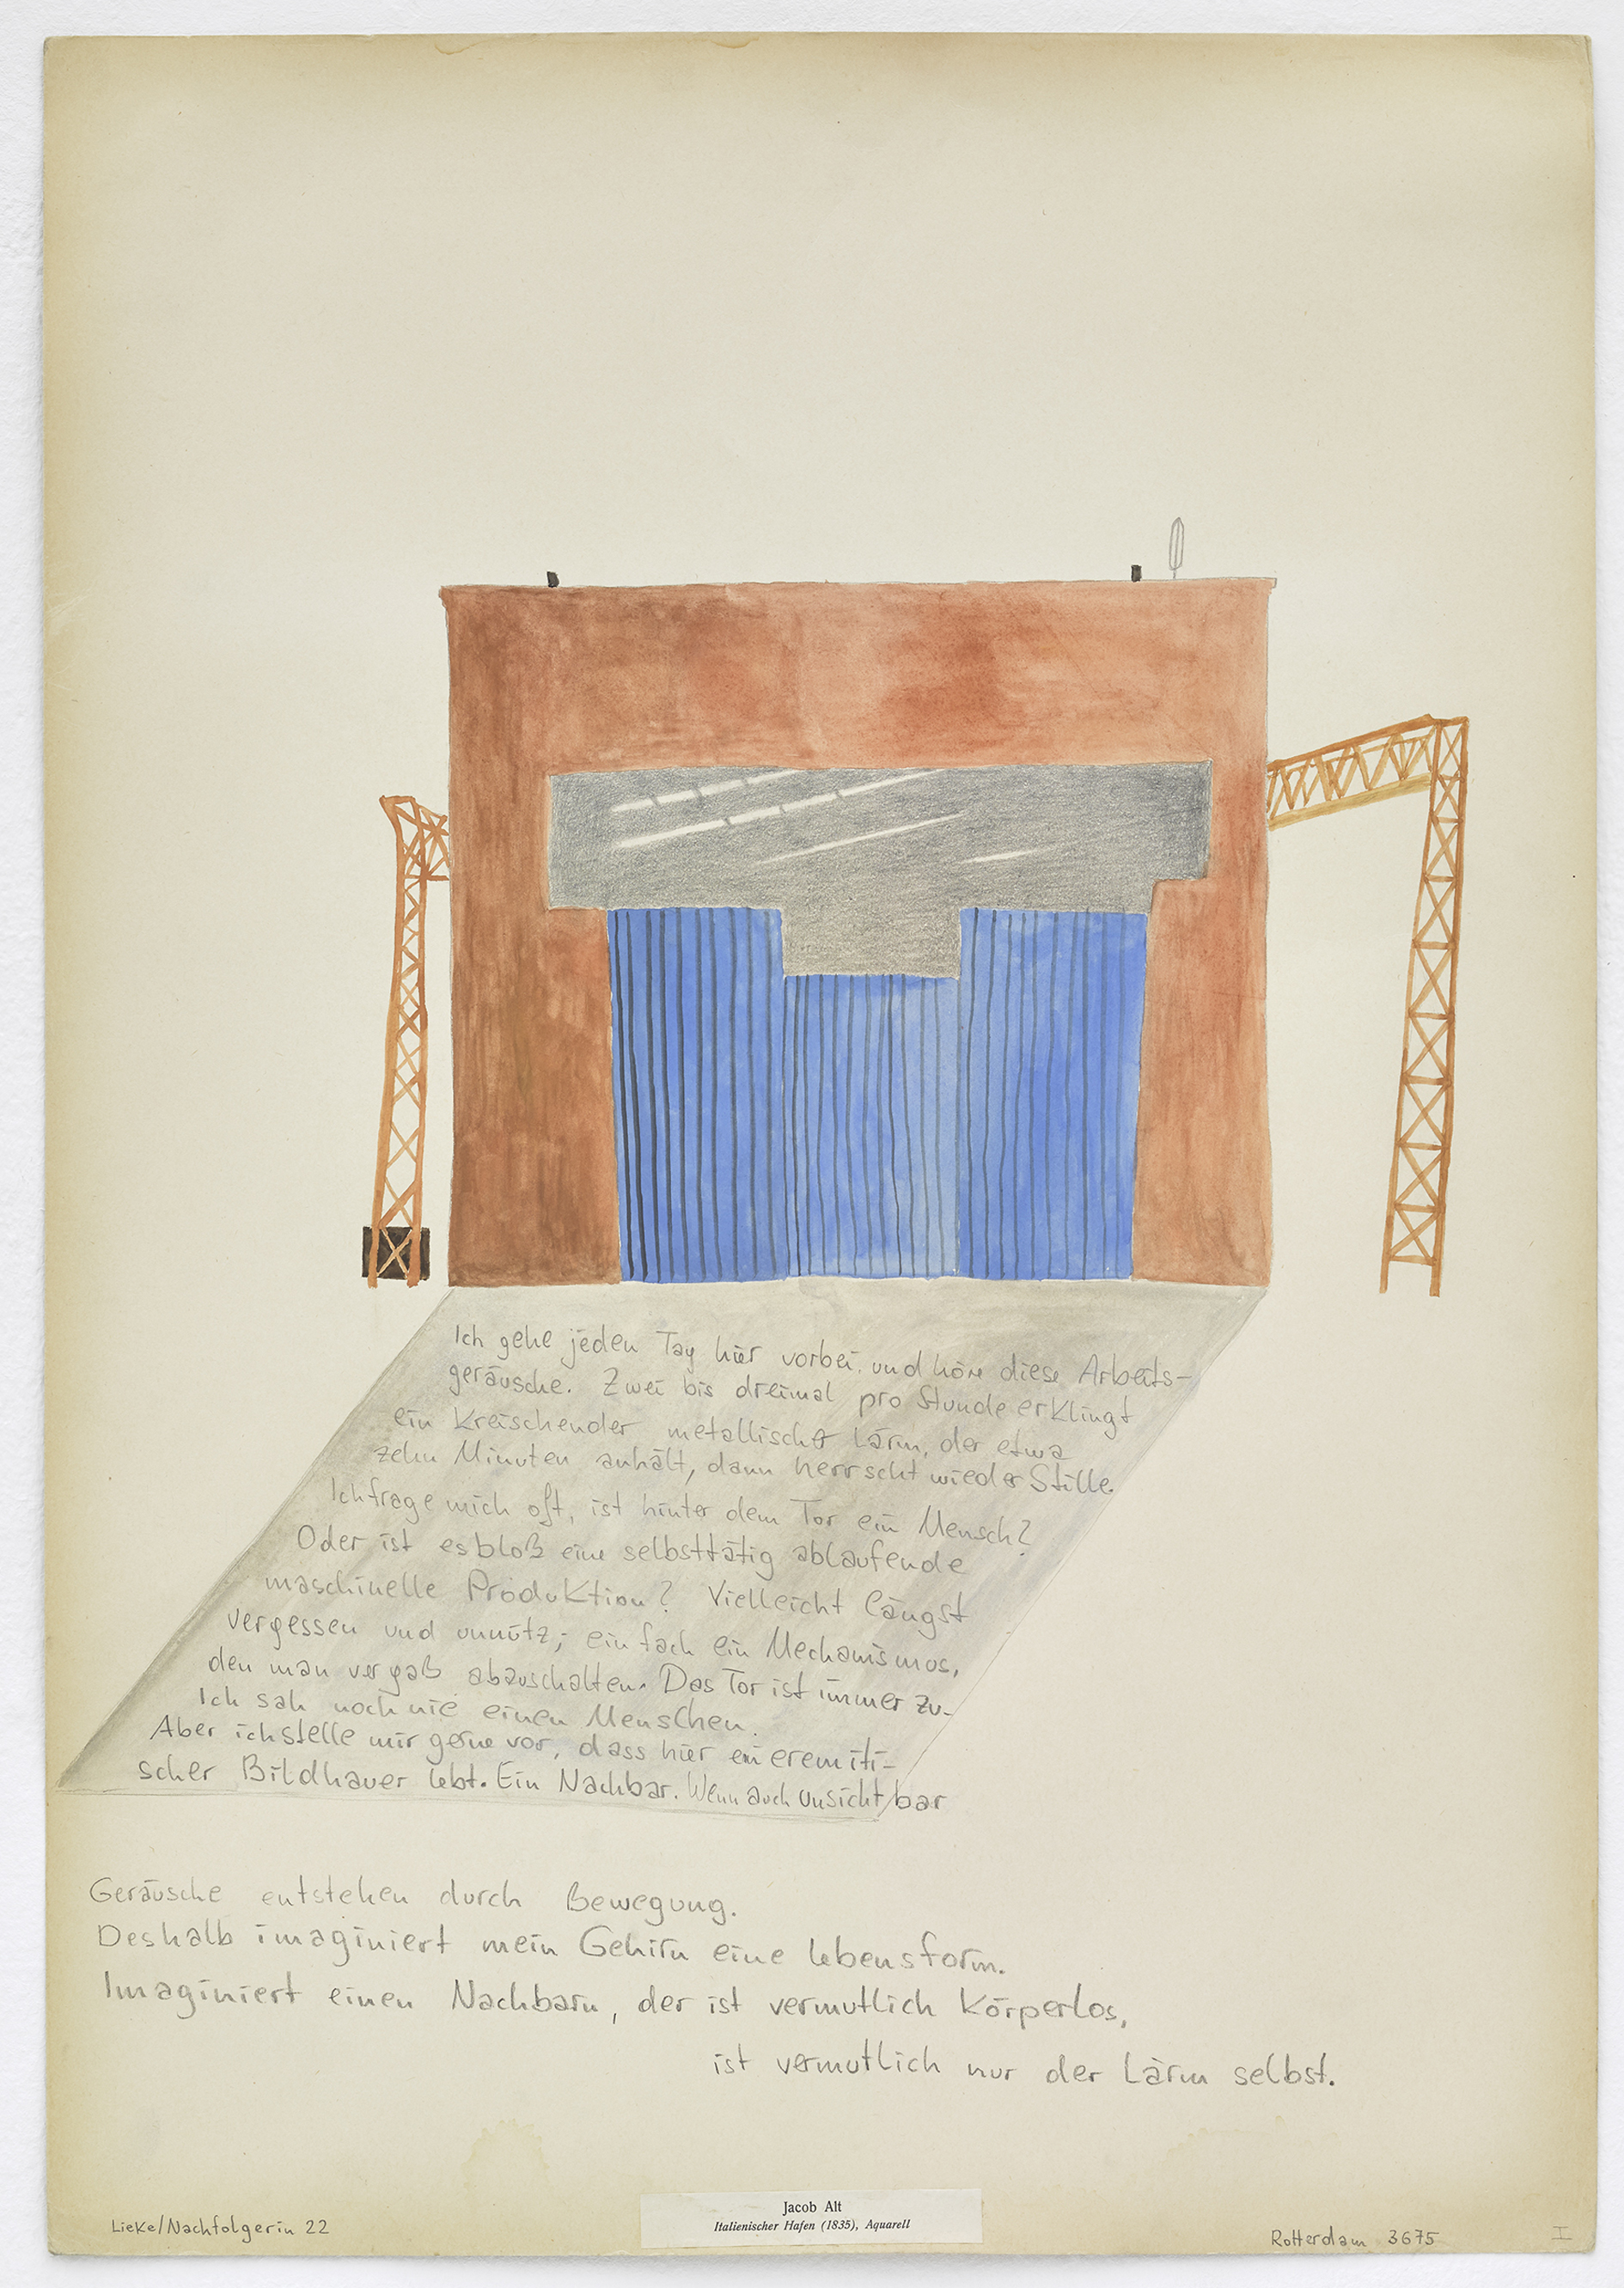 Ich gehe jeden Tag hier vorbei und höre diese Arbeits-
geräusche. Zwei bis dreimal pro Stunde erklingt
ein kreischender metallischer Lärm, der etwa
zehn Minuten anhält, dann herrscht wieder Stille.
Ich frage mich oft, ist hinter dem Tor ein Mensch?
Oder ist es bloß eine selbsttätig ablaufende
maschinelle Produktion? Vielleicht längst
vergessen und unnütz; einfach ein Mechanismus,
den man vergaß abzuschalten. Das Tor ist immer zu.
Ich sah noch nie einen Menschen.
Aber ich stelle mir gerne vor, dass hier ein eremiti-
scher Bildhauer lebt. Ein Nachbar. Wenn auch unsichtbar
Geräusche entstehen durch Bewegung.
Deshalb imaginiert mein Gehirn eine Lebensform.
Imaginiert einen Nachbarn, der ist vermutlich körperlos,
ist vermutlich nur der Lärm selbst.
Jacob Alt
Italienischer Hafen (1835), Aquarell
Lieke/Nachfolgerin 22
Rotterdam 3675
I